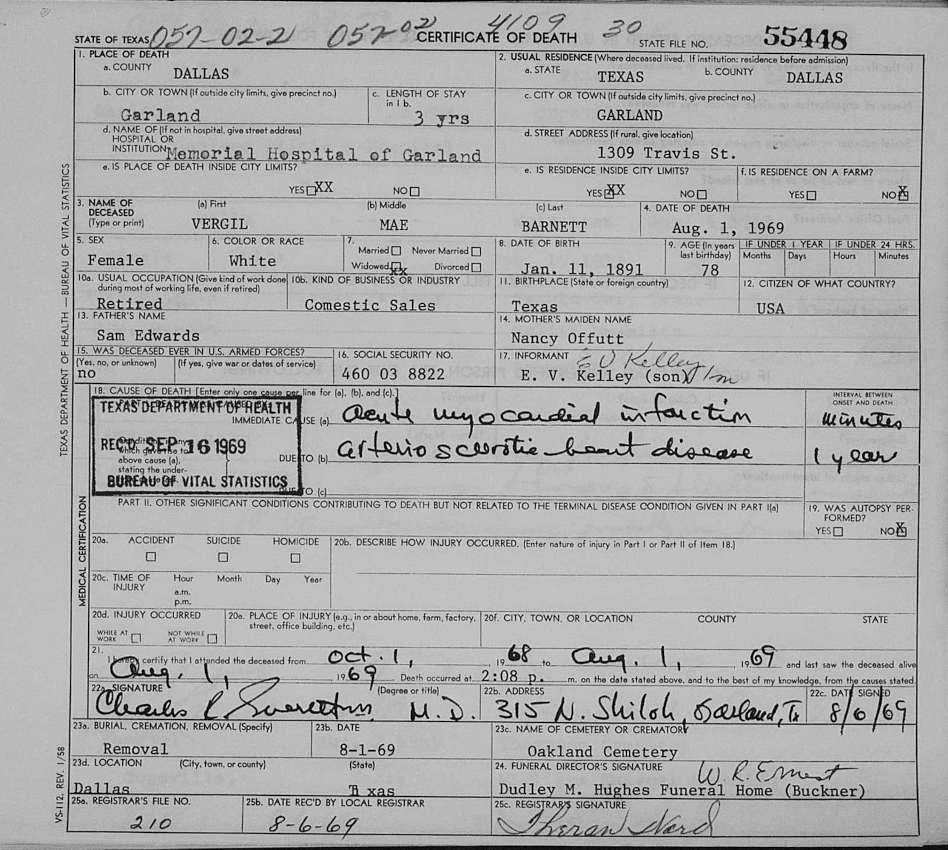 057-02-2 057-02 4109 30
STATE OF TEXAS CERTIFICATE OF DEATH STATE FILE NO. 55448
1. PLACE OF DEATH
a. COUNTY DALLAS
2. USUAL RESIDENCE (Where deceased lived. If institution: residence before admission)
a. STATE TEXAS b. COUNTY DALLAS
b. CITY OR TOWN (If outside city limits, give precinct no.) Garland
c. LENGTH OF STAY in 1 b. 3 yrs
c. CITY OR TOWN (If outside city limits, give precinct no.) GARLAND
d. NAME OF (If not in hospital, give street address)
HOSPITAL OR
INSTITUTION Memorial Hospital of Garland
d. STREET ADDRESS (If rural, give location)
1309 Travis St.
e. IS PLACE OF DEATH INSIDE CITY LIMITS?
YES XX NO
e. IS RESIDENCE INSIDE CITY LIMITS?
YES XX NO
f. IS RESIDENCE ON A FARM?
YES NO X
3. NAME OF DECEASED (Type or print)
(a) First VERGIL
(b) Middle MAE
(c) Last BARNETT
4. DATE OF DEATH
Aug. 1, 1969
5. SEX
Female
6. COLOR OR RACE
White
7.
Married Never Married
Widowed XX Divorced
8. DATE OF BIRTH
Jan. 11, 1891
9. AGE (In years last birthday) 78
IF UNDER 1 YEAR
Months Days
IF UNDER 24 HRS.
Hours Minutes
10a. USUAL OCCUPATION (Give kind of work done during most of working life, even if retired)
Retired
10b. KIND OF BUSINESS OR INDUSTRY
Comestic Sales
11. BIRTHPLACE (State or foreign country)
Texas
12. CITIZEN OF WHAT COUNTRY?
USA
13. FATHER'S NAME
Sam Edwards
14. MOTHER'S MAIDEN NAME
Nancy Offutt
15. WAS DECEASED EVER IN U.S. ARMED FORCES?
(Yes, no, or unknown) (If yes, give war or dates of service)
no
16. SOCIAL SECURITY NO.
460 03 8822
17. INFORMANT E V Kelley
E. V. Kelley (son)
18. CAUSE OF DEATH [Enter only one cause per line for (a), (b), and (c).]
INTERVAL BETWEEN ONSET AND DEATH
TEXAS DEPARTMENT OF HEALTH
REC'D SEP 16 1969
BUREAU OF VITAL STATISTICS
IMMEDIATE CAUSE (a) Acute myocardial infarction minutes
which gave rise to
above cause (a),
stating the under-
DUE TO (b) arteriosclerotic heart disease 1 year
DUE TO (c)
PART II. OTHER SIGNIFICANT CONDITIONS CONTRIBUTING TO DEATH BUT NOT RELATED TO THE TERMINAL DISEASE CONDITION GIVEN IN PART I(a)
19. WAS AUTOPSY PERFORMED?
YES NO X
20a. ACCIDENT SUICIDE HOMICIDE
20b. DESCRIBE HOW INJURY OCCURRED. (Enter nature of injury in Part I or Part II of Item 18.)
20c. TIME OF INJURY Hour Month Day Year
a.m.
p.m.
20d. INJURY OCCURRED
WHILE AT WORK NOT WHILE AT WORK
20e. PLACE OF INJURY (e.g., in or about home, farm, factory, street, office building, etc.)
20f. CITY, TOWN, OR LOCATION COUNTY STATE
21. I hereby certify that I attended the deceased from Oct. 1, 1968 to Aug. 1, 1969 and last saw the deceased alive
on Aug. 1, 1969 Death occurred at 2:08 p. m. on the date stated above, and to the best of my knowledge, from the causes stated.
22a. SIGNATURE (Degree or title)
Charles M.D.
22b. ADDRESS
315 N. Shiloh, Garland, Tx
22c. DATE SIGNED
8/6/69
23a. BURIAL, CREMATION, REMOVAL (Specify)
Removal
23b. DATE
8-1-69
23c. NAME OF CEMETERY OR CREMATORY
Oakland Cemetery
23d. LOCATION (City, town, or county) (State)
Dallas Texas
24. FUNERAL DIRECTOR'S SIGNATURE W. R. Ernest
Dudley M. Hughes Funeral Home (Buckner)
25a. REGISTRAR'S FILE NO.
210
25b. DATE REC'D BY LOCAL REGISTRAR
8-6-69
25c. REGISTRAR'S SIGNATURE
TEXAS DEPARTMENT OF HEALTH — BUREAU OF VITAL STATISTICS
MEDICAL CERTIFICATION
VS-112, REV. 1/58